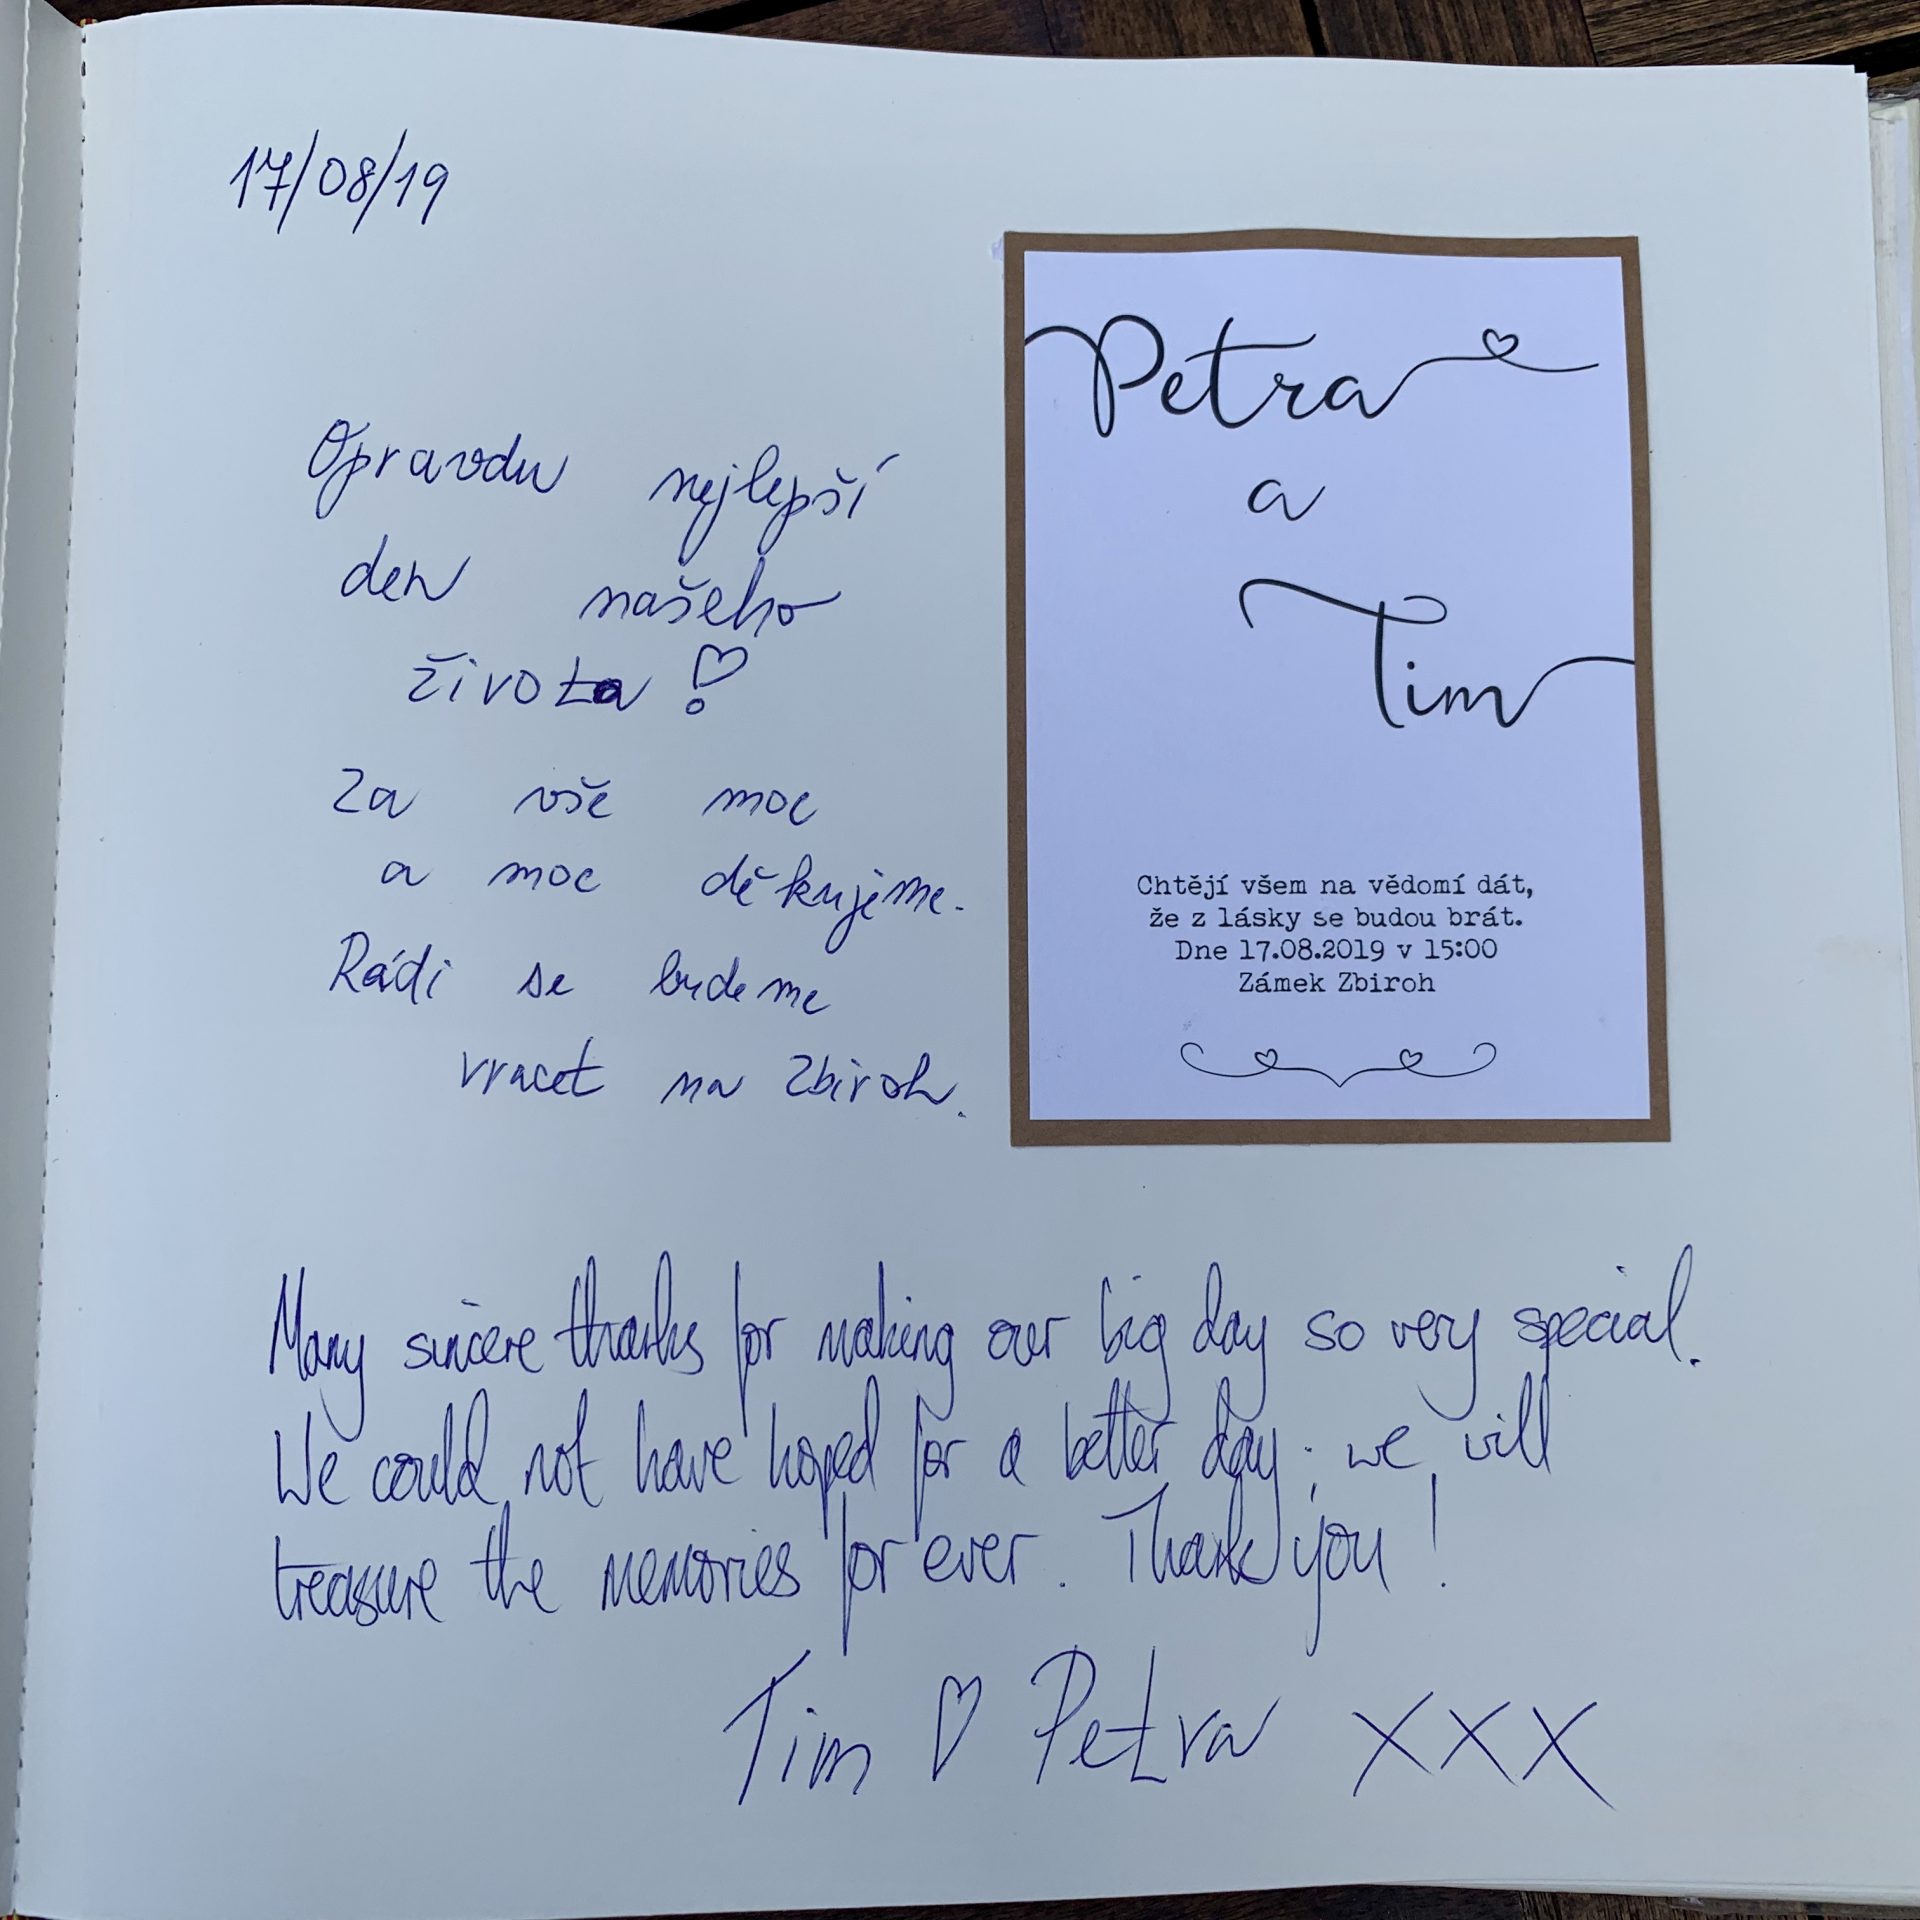 17/08/19
Opravdu nejlepší
den našeho
života!
Za vše moc
a moc děkujeme.
Rádi se budeme
vracet na Zbiroh.
Petra
a
Tim
Chtějí všem na vědomí dát,
že z lásky se budou brát.
Dne 17.08.2019 v 15:00
Zámek Zbiroh
Many sincere thanks for making our big day so very special.
We could not have hoped for a better day; we will
treasure the memories for ever. Thank you!
Tim ♡ Petra xxx